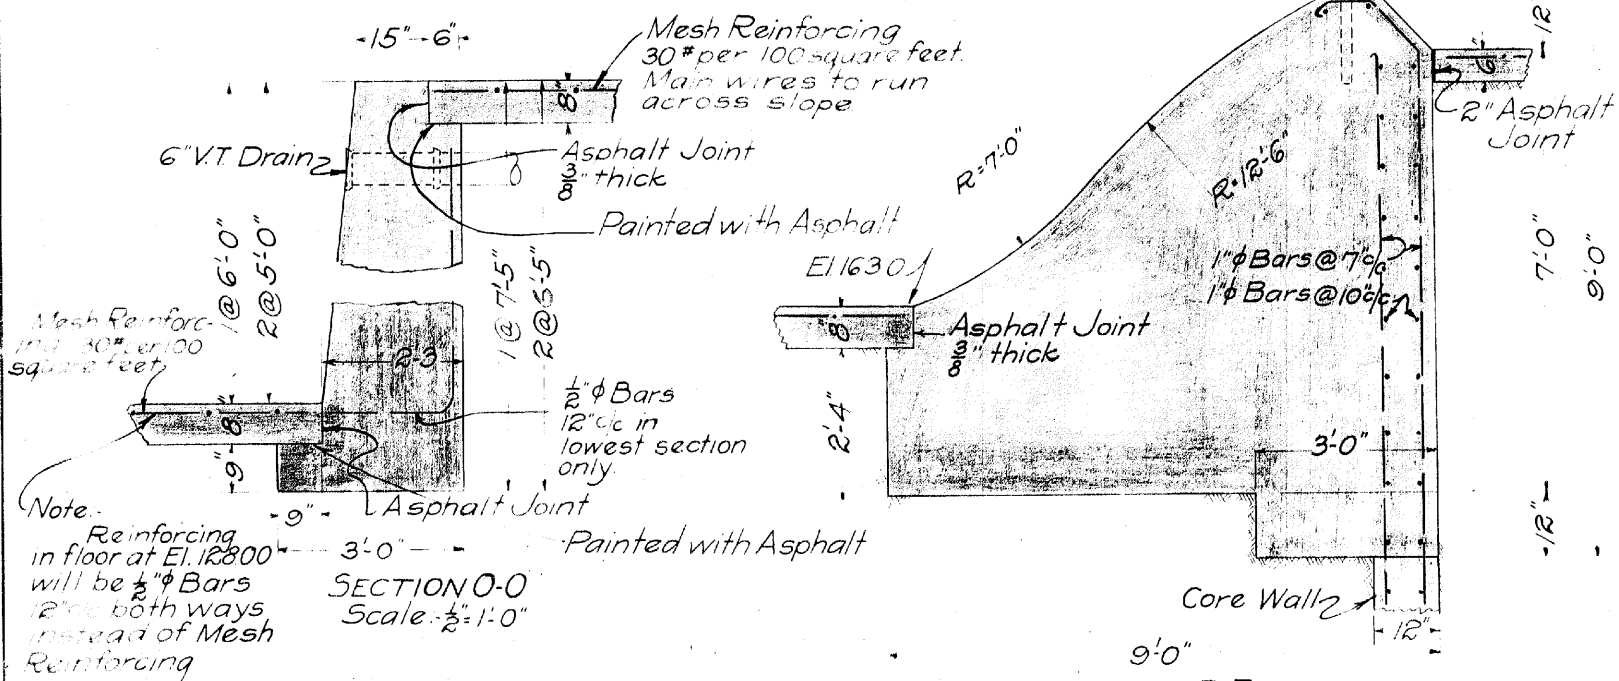 15" 6"
Mesh Reinforcing
30# per 100 square feet.
Main wires to run
across slope
8"
6" V.T. Drain
8
Asphalt Joint
3/8" thick
Painted with Asphalt
1 @ 6'-0"
2 @ 5'-0"
1 @ 7'-5"
2 @ 6'-5"
Mesh Reinforc-
ing 30# per 100
square feet
2'-3
8"
9"
1/2" ϕ Bars
12" c/c in
lowest section
only.
Asphalt Joint
9"
3'-0"
Painted with Asphalt
Note:-
Reinforcing
in floor at El. 128.00
will be 1/2" ϕ Bars
12" c/c both ways
instead of Mesh
Reinforcing
SECTION O-O
Scale:- 1/2"=1'-0"
R=7'-0"
R=12'-6"
El. 163.0
8"
Asphalt Joint
3/8" thick
2'-4"
1" ϕ Bars @ 7" c/c
1" ϕ Bars @ 10" c/c
3'-0"
Core Wall
12"
9'-0"
6"
2" Asphalt
Joint
12
7'-0"
9'-0"
12"